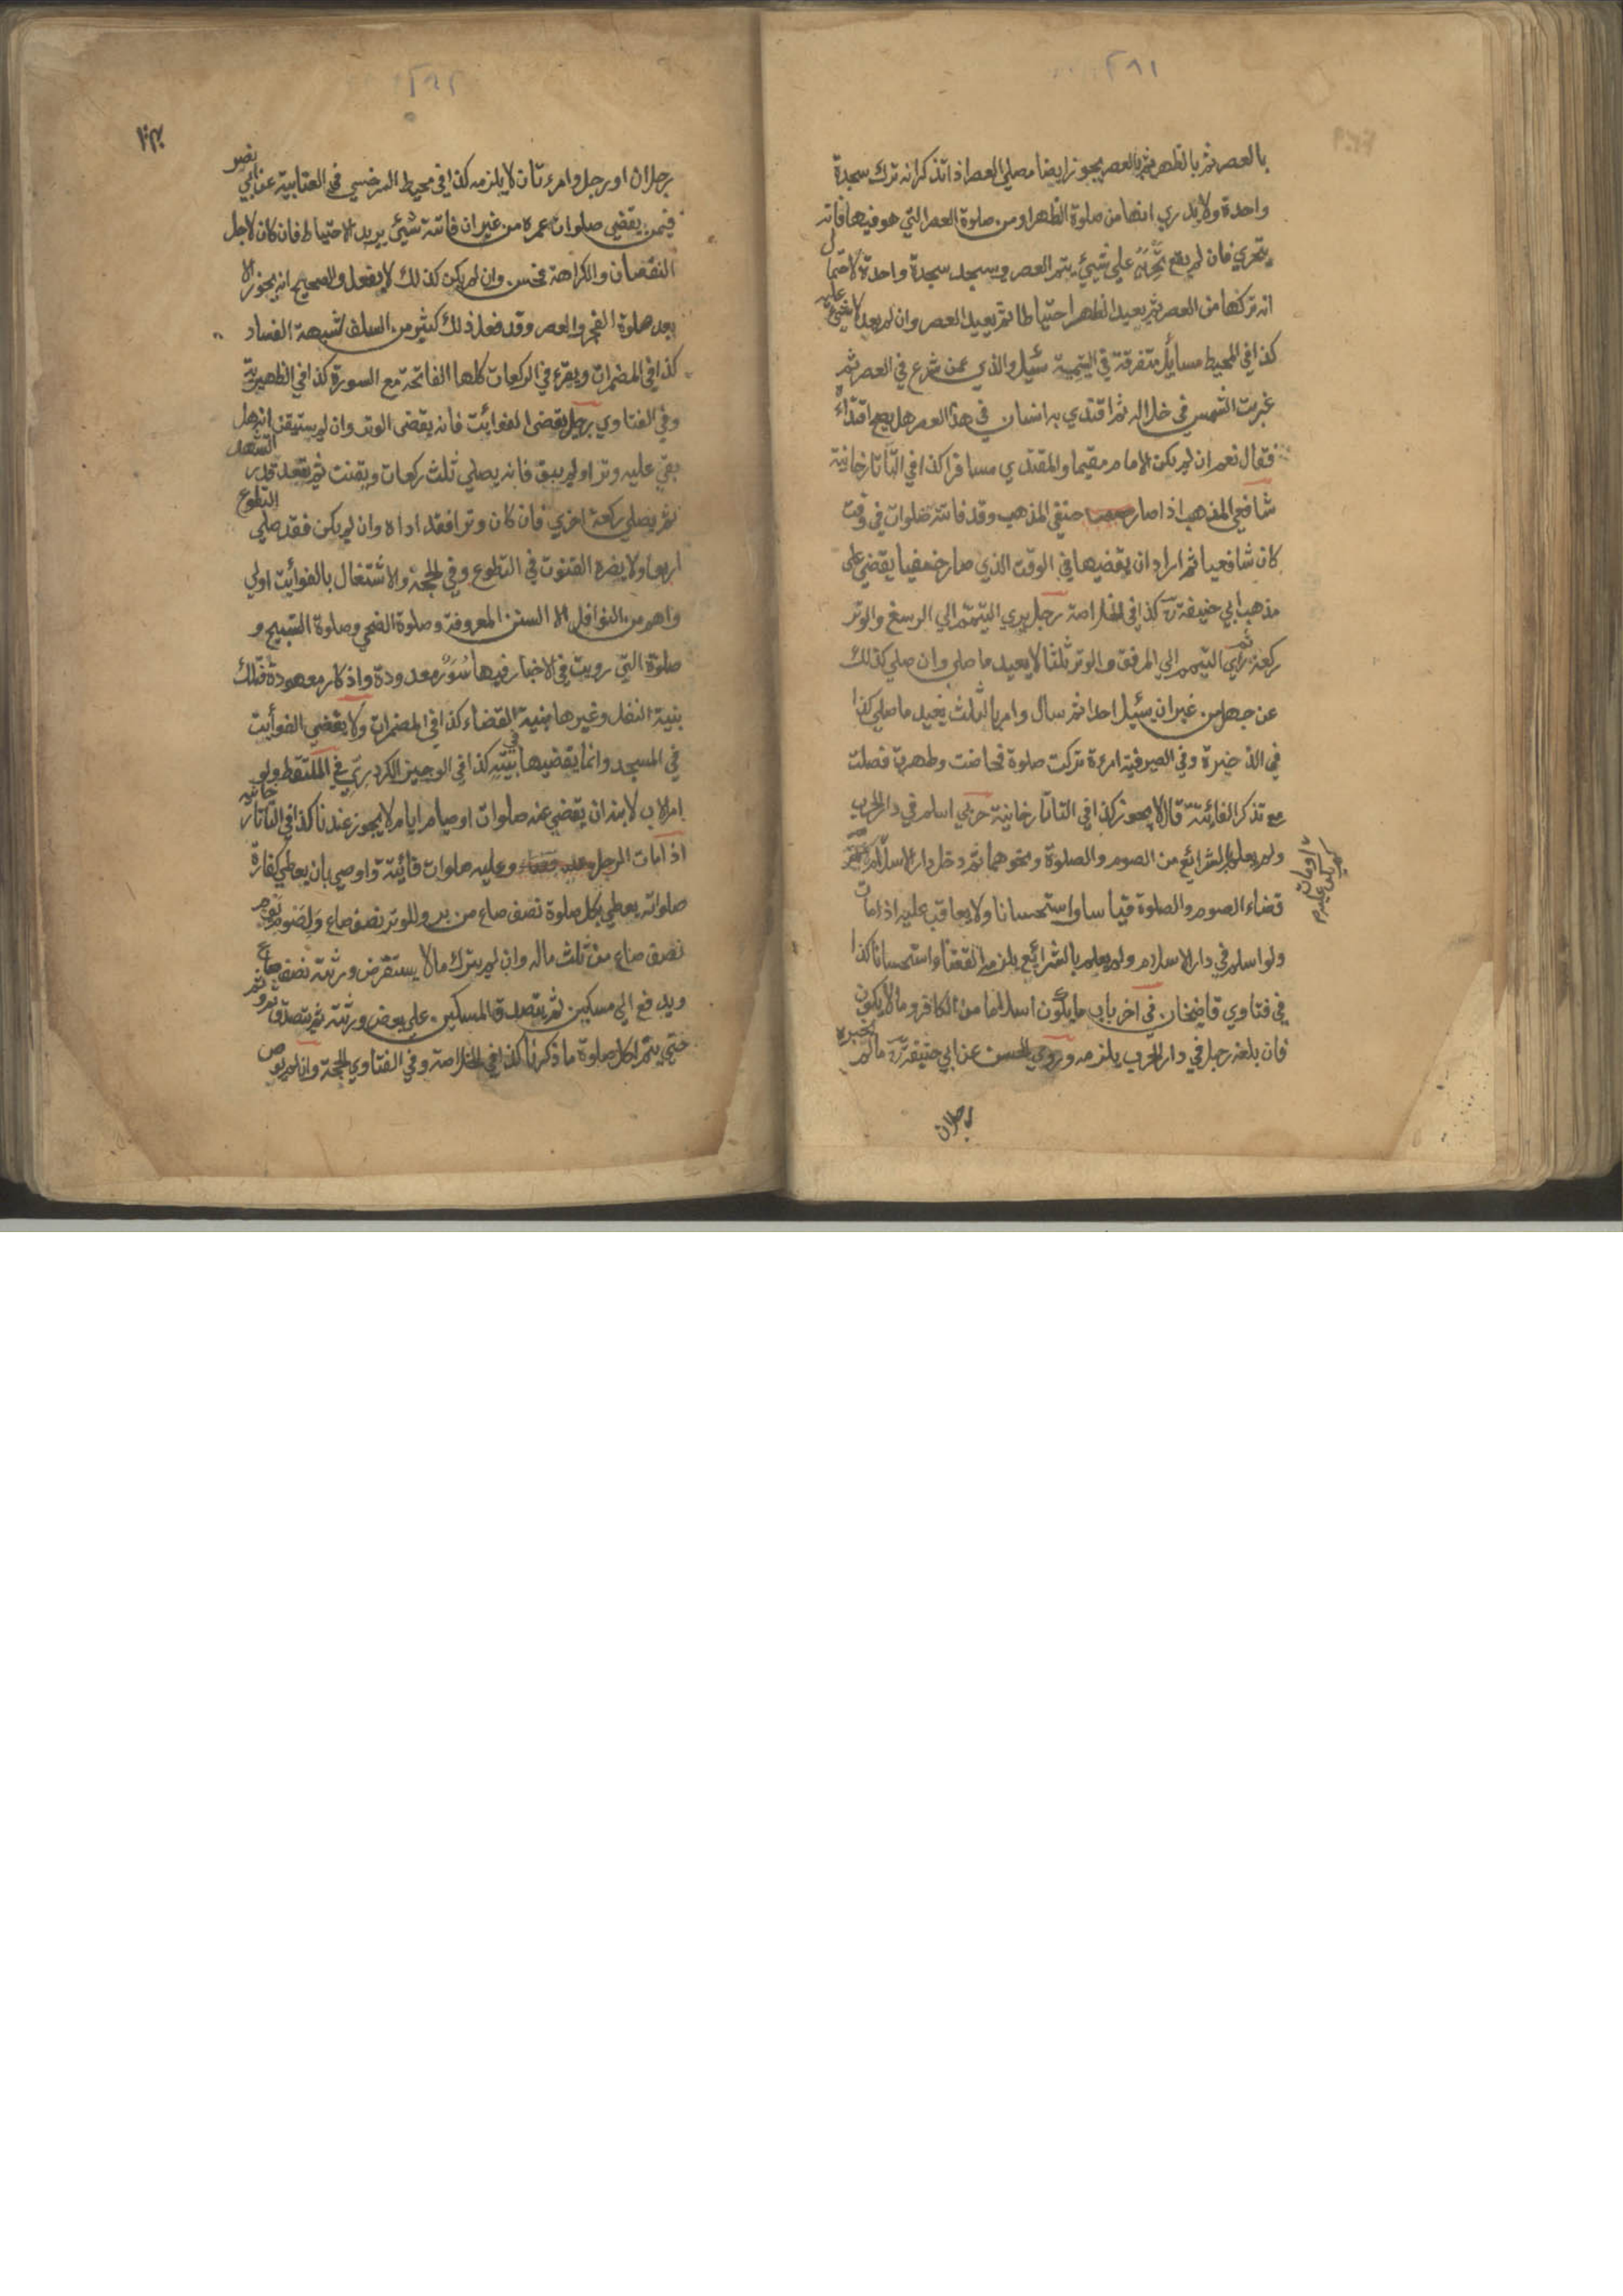 ٢٩١
بالعصر ثم بالظهر ثم بالعصر يجوز ايضا مصلي العصر اذا تذكر انه ترك سجدة
واحدة ولا يدري انها من صلوة الظهر او من صلوة العصر التي هو فيها فانه
يتحري فان لم يقع تحريه علي شيئ يتم العصر ويسجد سجدة واحدة لاحتمال
انه تركها من العصر ثم يعيد الظهر احتياطا ثم يعيد العصر وان لم يعد لا شيئ عليه
كذا في المحيط مسايل متفرقة في اليتيمية سئيل والدي عمن شرع في العصر ثم
غربت الشمس في خلاله ثم اقتدي به انسان في هذا العصر هل يصح اقتداءه
فقال نعم ان لم يكن الامام مقيما والمقتدي مسافرا كذا في التاتارخانية
شافعي المذهب اذا صار حنفي المذهب وقد فاتته صلوات في وقت
كان شافعيا ثم اراد ان يقضيها في الوقت الذي صار حنفيا يقضي علي
مذهب ابي حنيفة رح كذا في الخلاصة رجل يري التيمم الي الرسغ والوتر
ركعة ثم رأي التيمم الي المرفق والوتر ثلثا لا يعيد ما صلي وان صلي كذلك
عن جهل من غير ان يسئيل احدا ثم سأل وامر بالثلث يعيد ما صلي كذا
في الذخيرة وفي الصيرفية امرءة تركت صلوة فحاضت وطهرت فصلت
مع تذكر الفائتة قال لا يجوز كذا في التاتارخانية حربي اسلم في دار الحرب
ولم يعلم بالشرائع من الصوم والصلوة ونحوهما ثم دخل دار الاسلام
قضاء الصوم والصلوة قياسا واستحسانا ولا يعاقب عليه اذا مات
ولو اسلم في دار الاسلام ولم يعلم بالشرائع يلزمه القضاء استحسانا كذا
في فتاوي قاضيخان في اخر باب ما يكون اسلاما من الكافر وما لا يكون
فان بلغه رجل في دار الحرب يلزمه وروي الحسن عن ابي حنيفة رح ما لم يخبره
رجلان
٢٩٢
رجلان او رجل وامرءتان لا يلزمه كذا في محيط السرخسي في العتابية عن ابي نصر
فيمن يقضي صلوات عمره من غير ان فاتته شيئ يريد الاحتياط فان كان لاجل
النقصان والكراهة فحسن وان لم يكن كذلك لا يفعل والصحيح انه يجوز الا
بعد صلوة الفجر والعصر وقد فعل ذلك كثير من السلف لشبهة الفساد
كذا في المضمرات ويقرء في الركعات كلها الفاتحة مع السورة كذا في الظهيرية
وفي الفتاوي رجل يقضي الفوائت فانه يقضي الوتر وان لم يستيقن انه هل
بقي عليه وتر او لم يبق فانه يصلي ثلث ركعات ويقنت ثم يقعد قدر التشهد
ثم يصلي ركعة اخري فان كان وترا فقد اداه وان لم يكن فقد صلي التطوع
اربعا ولا يضره القنوت في التطوع وفي الحجة والاشتغال بالفوائت اولي
واهم من النوافل الا السنن المعروفة وصلوة الضحي وصلوة التسبيح و
صلوة التي رويت في الاخبار فيها سور معدودة واذكار معهودة فتلك
بنية النفل وغيرها بنية القضاء كذا في المضمرات ولا يقضي الفوأيت
في المسجد وانما يقضيها في بيته كذا في الوجيز الكردري في الملتقط ولو
امر الاب لابنه ان يقضي عنه صلوات او صيام ايام لا يجوز عندنا كذا في التاتارخانية
اذا مات الرجل وعليه صلوات فائتة واوصي بان يعطي كفارة
صلواته يعطي لكل صلوة نصف صاع من بر وللوتر نصف صاع ولصوم يوم
نصف صاع من ثلث ماله وان لم يترك مالا يستقرض ورثته نصف صاع
ويدفع الي مسكين ثم يتصدق المسكين علي بعض ورثته ثم يتصدق ثم وثم
حتي يتم لكل صلوة ما ذكرنا كذا في الخلاصة وفي الفتاوي الحجة وان لم يوص